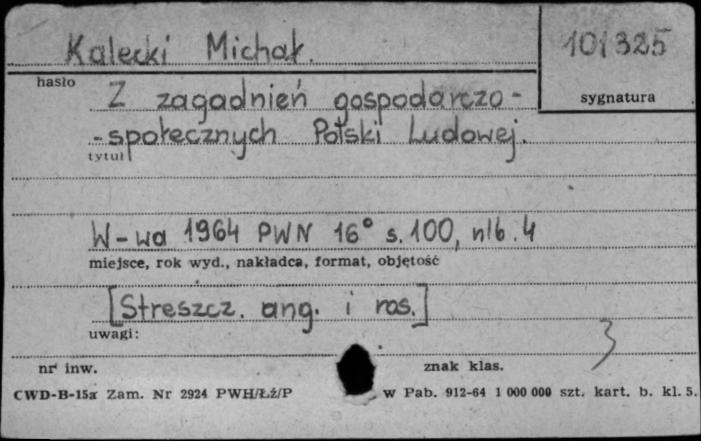 Kalecki Michał.
101325
hasło
sygnatura
Z zagadnień gospodarczo-
-społecznych Polski Ludowej.
tytuł
W-wa 1964 PWN 16° s. 100, nlb. 4
miejsce, rok wyd., nakładca, format, objętość
[Streszcz. ang. i ros.]
uwagi:
3
nr inw.
znak klas.
CWD-B-15a Zam. Nr 2924 PWH/Łź/P
w Pab. 912-64 1 000 000 szt. kart. b. kl. 5.